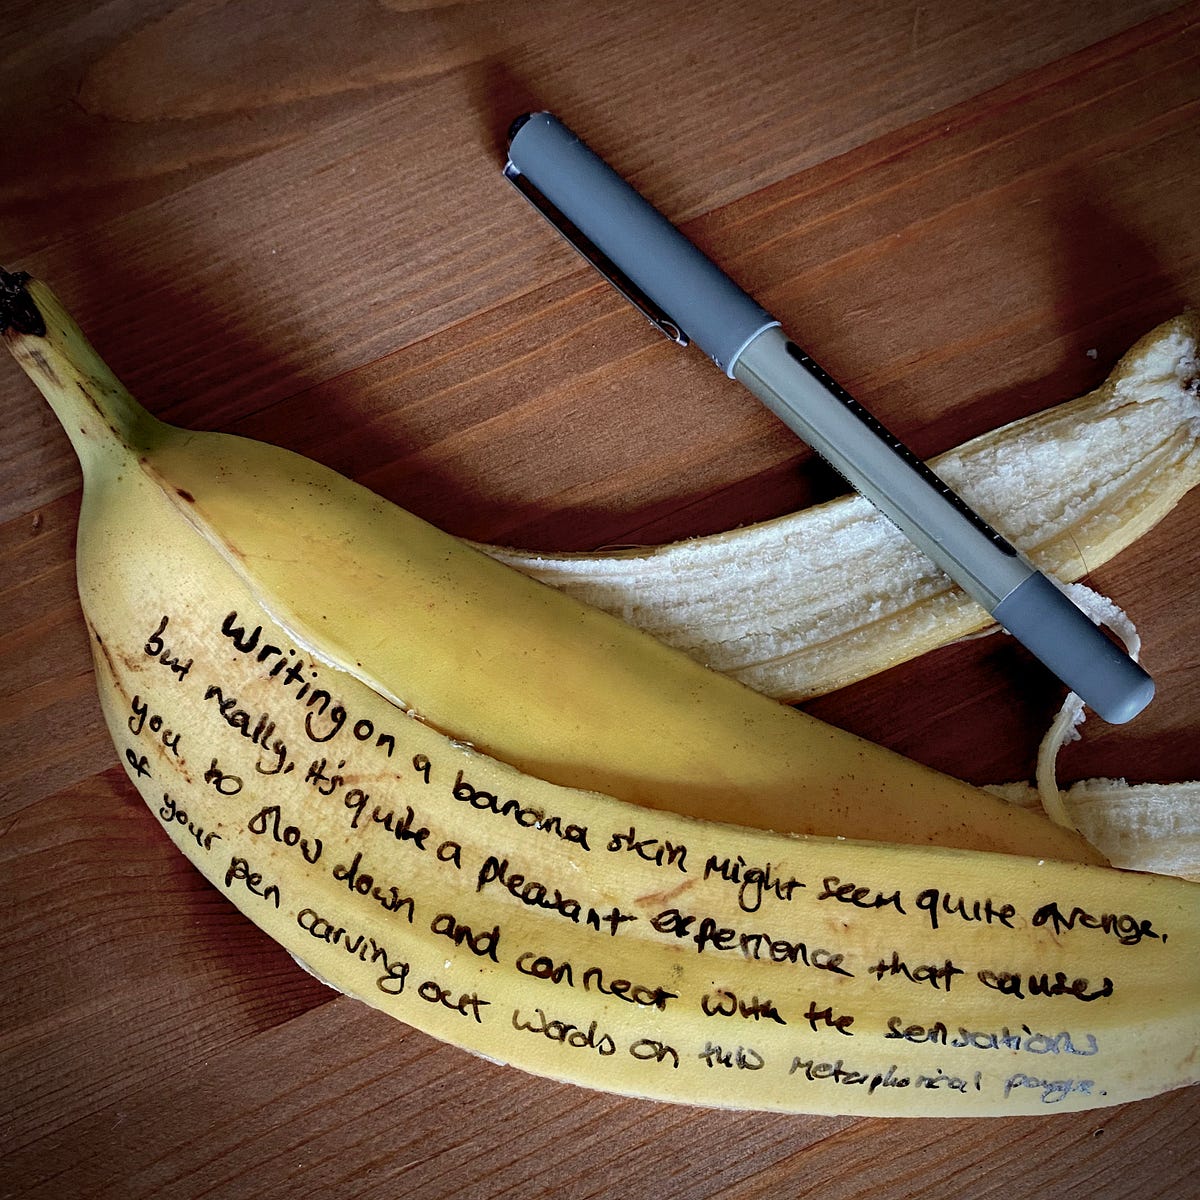 Writing on a banana skin might seem quite strange,
but really, it's quite a pleasant experience that causes
you to slow down and connect with the sensations
of your pen carving out words on this metaphorical page.